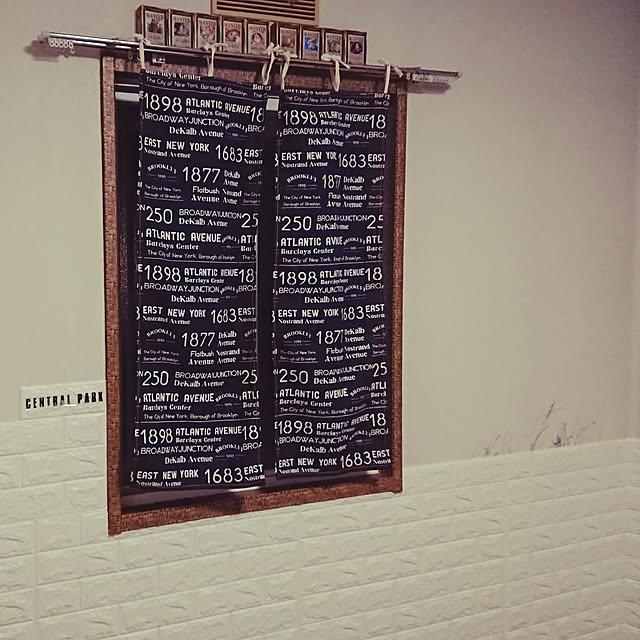 WANTED WANTED WANTED
Barclays Center
The City of New York, Borough of Brooklyn
1898 ATLANTIC AVENUE 18
Barclays Center
BROADWAYJUNCTION BRO
DeKalb Avenue
EAST NEW YORK 1683 EAST
Nostrand Avenue
BROOKLYN 1877 DeKalb Avenue
1898
The City of New York, Flatbush Nostrand
Borough of Brooklyn. Avenue Avenue
250 BROADWAYJUNCTION 25
DeKalb Avenue
ATLANTIC AVENUE BROOKLYN ATL
Barclays Center
The City of New York, Borough of Brooklyn
1898 ATLANTIC AVENUE 18
Barclays Center
BROADWAYJUNCTION BRO
DeKalb Avenue
EAST NEW YORK 1683 EAST
Nostrand Avenue
BROOKLYN 1877 DeKalb Avenue
1898
The City of New York, Flatbush Nostrand
Borough of Brooklyn. Avenue Avenue
250 BROADWAYJUNCTION 25
DeKalb Avenue
ATLANTIC AVENUE BROOKLYN ATL
Barclays Center
The City of New York, Borough of Brooklyn
1898 ATLANTIC AVENUE 18
Barclays Center
BROADWAYJUNCTION BRO
DeKalb Avenue
EAST NEW YORK 1683 EAST
Nostrand Avenue
1898 ATLANTIC AVENUE 18
Barclays Center
BROADWAYJUNCTION
DeKalb Avenue
EAST NEW YORK 1683
Nostrand Avenue
BROOKLYN 187 DeKalb Avenue
1898
The City of New York, Flatb Nostrand
Borough of Brooklyn. Aven Avenue
250 BROADWAYJUNCTION 25
DeKalb Avenue
ATLANTIC AVENUE BROOKLYN ATL
Barclays Center
The City of New York, Borough of Brooklyn The C
1898 ATLANTIC AVENUE 18
Barclays Center
BROADWAYJUNCTION BRO
DeKalb Avenue
EAST NEW YORK 1683
Nostrand Avenue
BROOKLYN 187 DeKalb Avenue
1898
The City of New York, Flatb Nostrand
Borough of Brooklyn. Aven Avenue
250 BROADWAYJUNCTION 25
DeKalb Avenue
ATLANTIC AVENUE BROOKLYN ATL
Barclays Center
The City of New York, Borough of Brooklyn The C
1898 ATLANTIC AVENUE 18
Barclays Center
BROADWAYJUNCTION BRO
DeKalb Avenue
EAST NEW YORK 1683 EAST
Nostrand Avenue
CENTRAL PARK